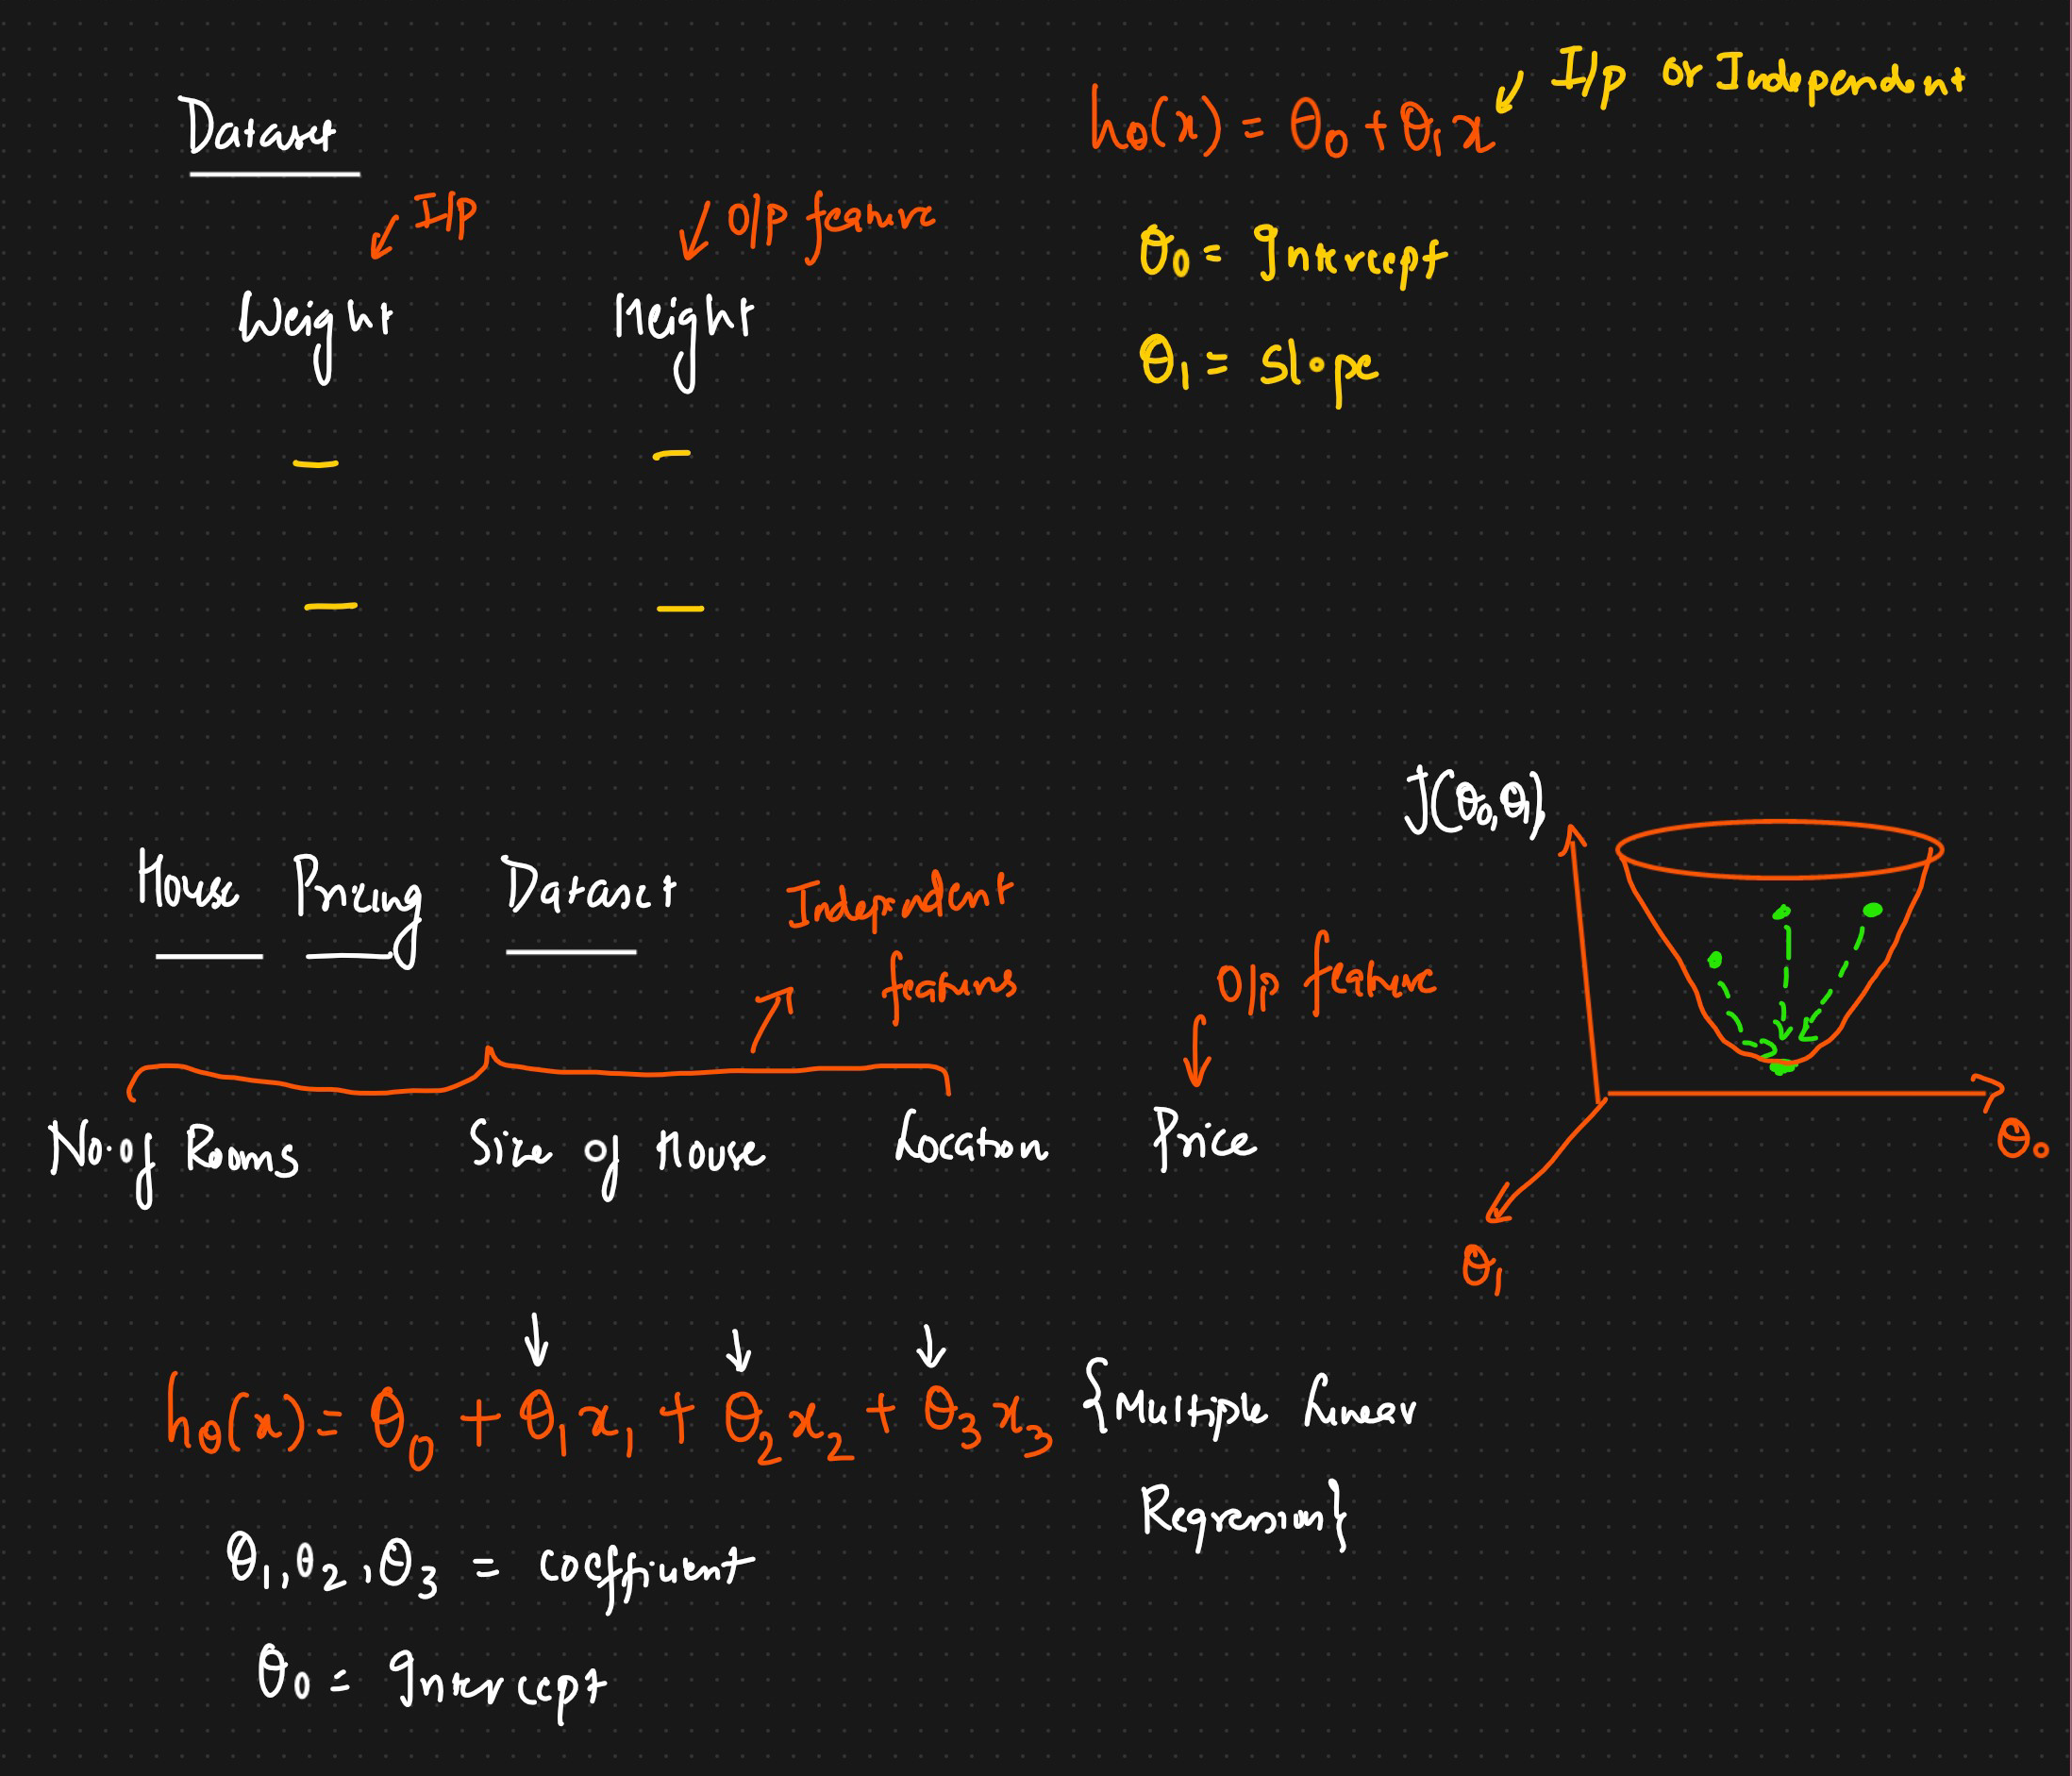 Dataset
I/p
O/p feature
Weight Height
hθ(x) = θ0 + θ1 x
I/p or Independent
θ0 = Intercept
θ1 = slope
House Pricing Dataset
Independent
features
O/p feature
No. of Rooms Size of House Location Price
J(θ0, θ1)
θ0
θ1
hθ(x) = θ0 + θ1 x1 + θ2 x2 + θ3 x3 {Multiple Linear
Regression}
θ1, θ2, θ3 = coefficient
θ0 = Intercept